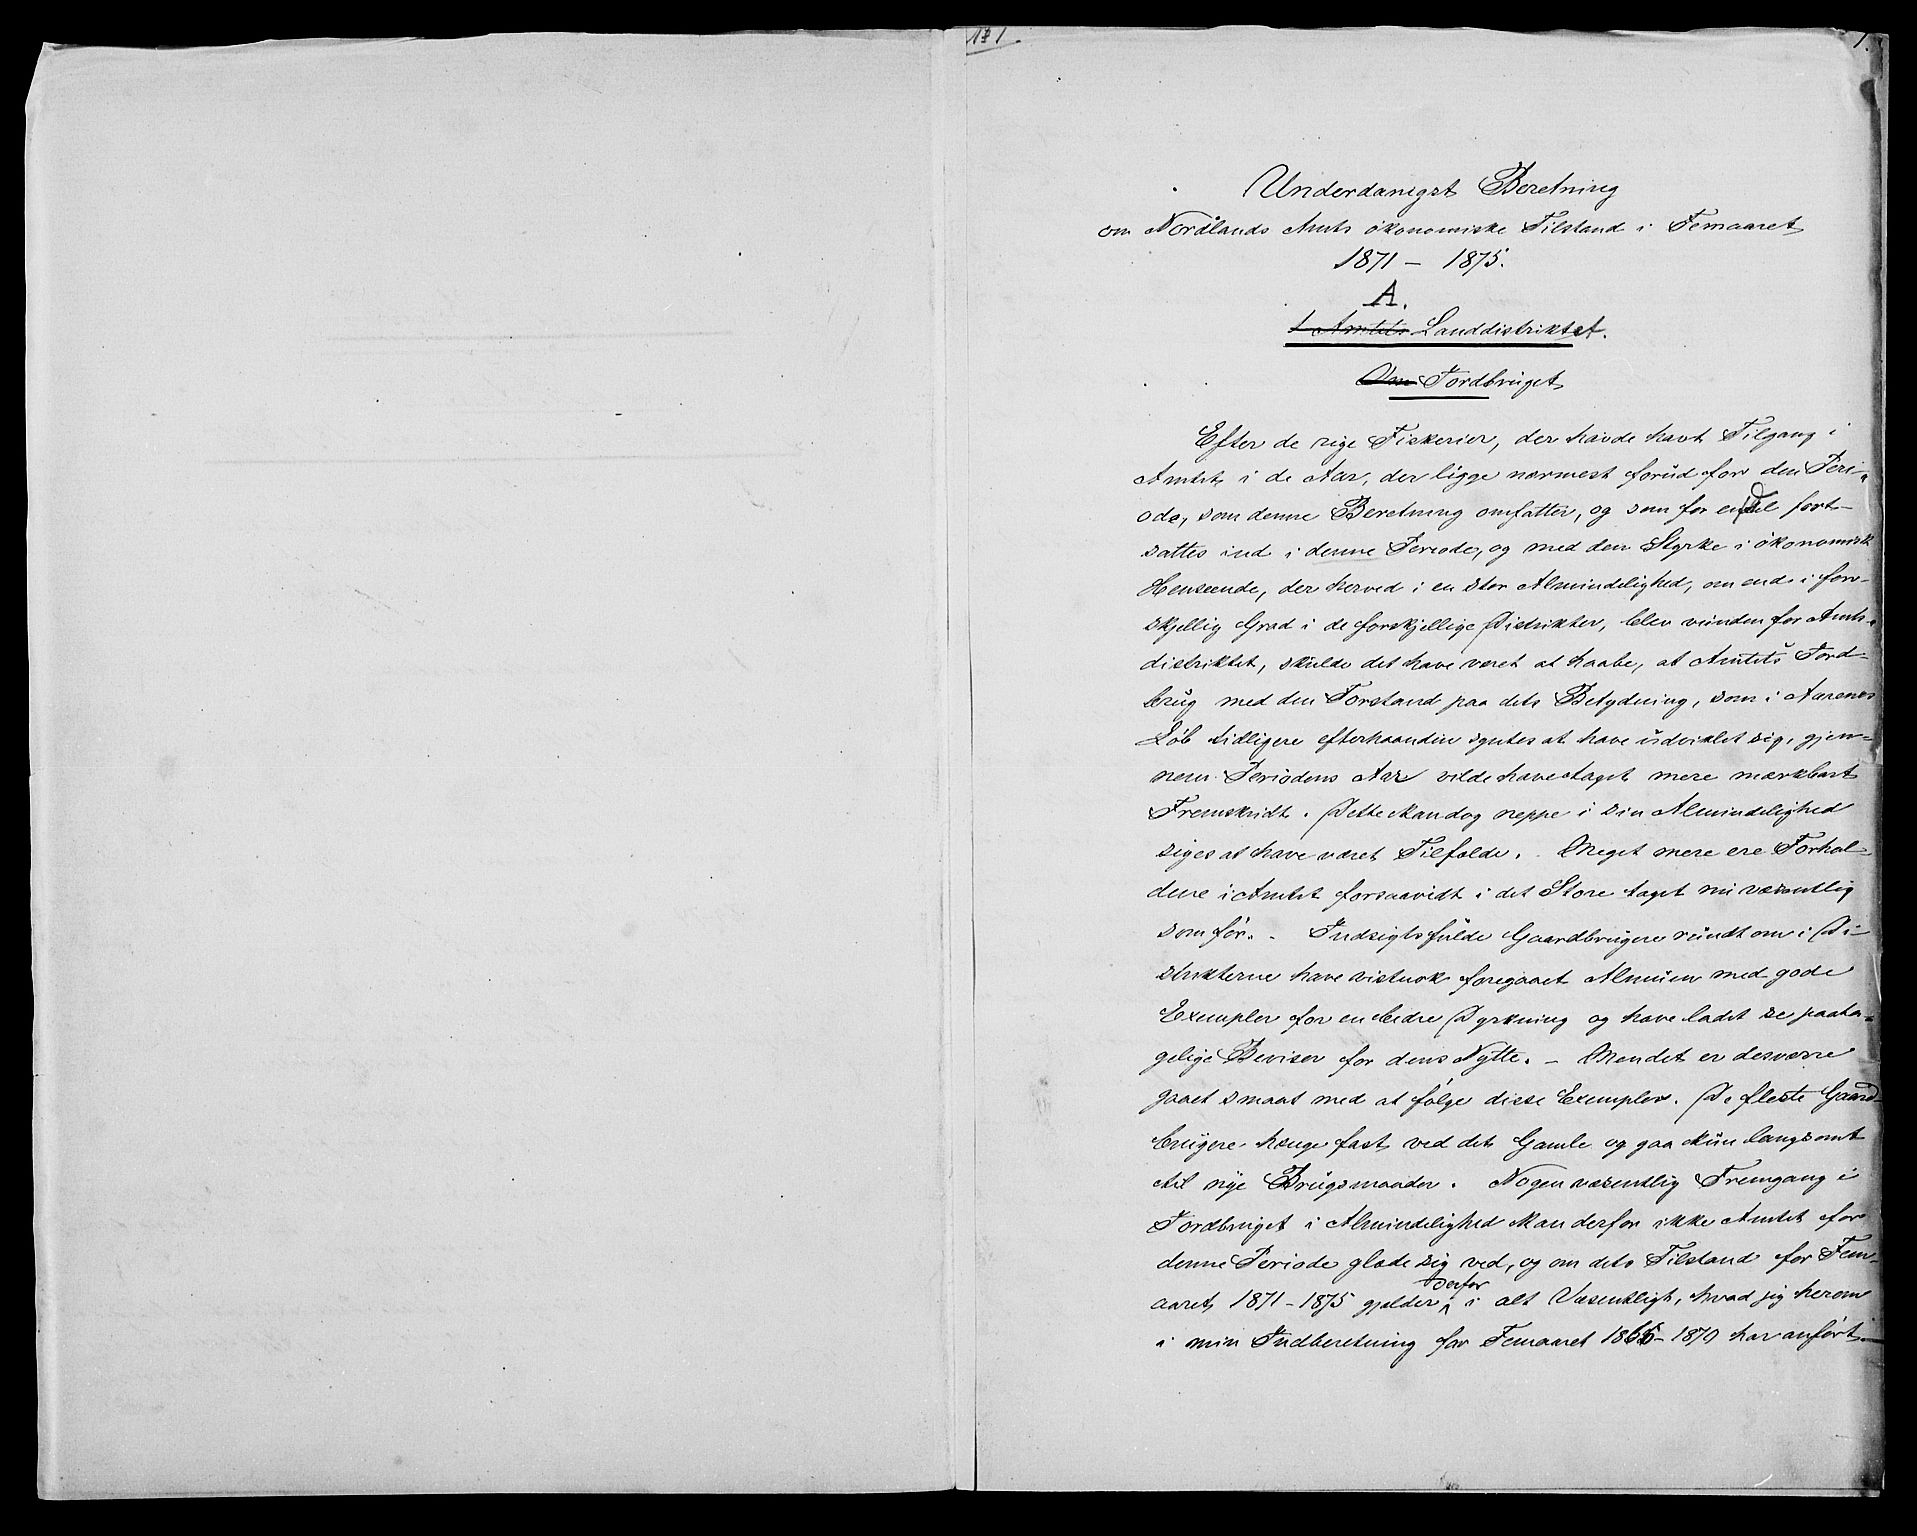 1.
Underdanigst Beretning
om Nordlands Amts økonomiske Tilstand i Femaaret
1871 – 1875.
A.
I Amtets Landdistriktet.
Om Jordbruget
Efter de rige Fiskerier, der havde havt Tilgang i
Amtet i de Aar, der ligge nærmest forud for den Peri-
ode, som denne Beretning omfatter, og som for en Del fort-
sattes ind i denne Periode, og med den Styrke i økonomisk
Henseende, der herved i en stor Almindelighed, om end i for-
skjellig Grad i de forskjellige Distrikter, blev vunden for Amts-
distriktet, skulde det have været at haabe, at Amtets Jord-
brug med den Forstand paa dets Betydning, som i Aarenes
Løb tidligere efterhaanden syntes at have udviklet sig, gjen-
nem Periodens Aar vilde have taget mere mærkbart
Fremskridt. Dette kan dog neppe i sin Almindelighed
siges at have været Tilfælde. Meget mere ere Forhol-
dene i Amtet forsaavidt i det Store taget nu væsentlig
som før. - Indsigtsfulde Gaardbrugere rundt om i Di-
strikterne have vistnok foregaaet Almuen med gode
Exempler for en bedre Dyrkning og have ladet se paata-
gelige Beviser for dens Nytte. – Men det er desværre
gaaet smaat med at følge disse Exempler. De fleste Gaard-
brugere hænge fast ved det Gamle og gaa kun langsomt
til nye Brugsmaader. Nogen væsentlig Fremgang i
Jordbruget i Almindelighed kan derfor ikke Amtet for
denne Periode glæde sig ved, og om dets Tilstand for Fem-
aaret 1871–1875 gjælder derfor i alt Væsentligt, hvad jeg herom
i min Indberetning for Femaaret 1866–1870 har anført.–